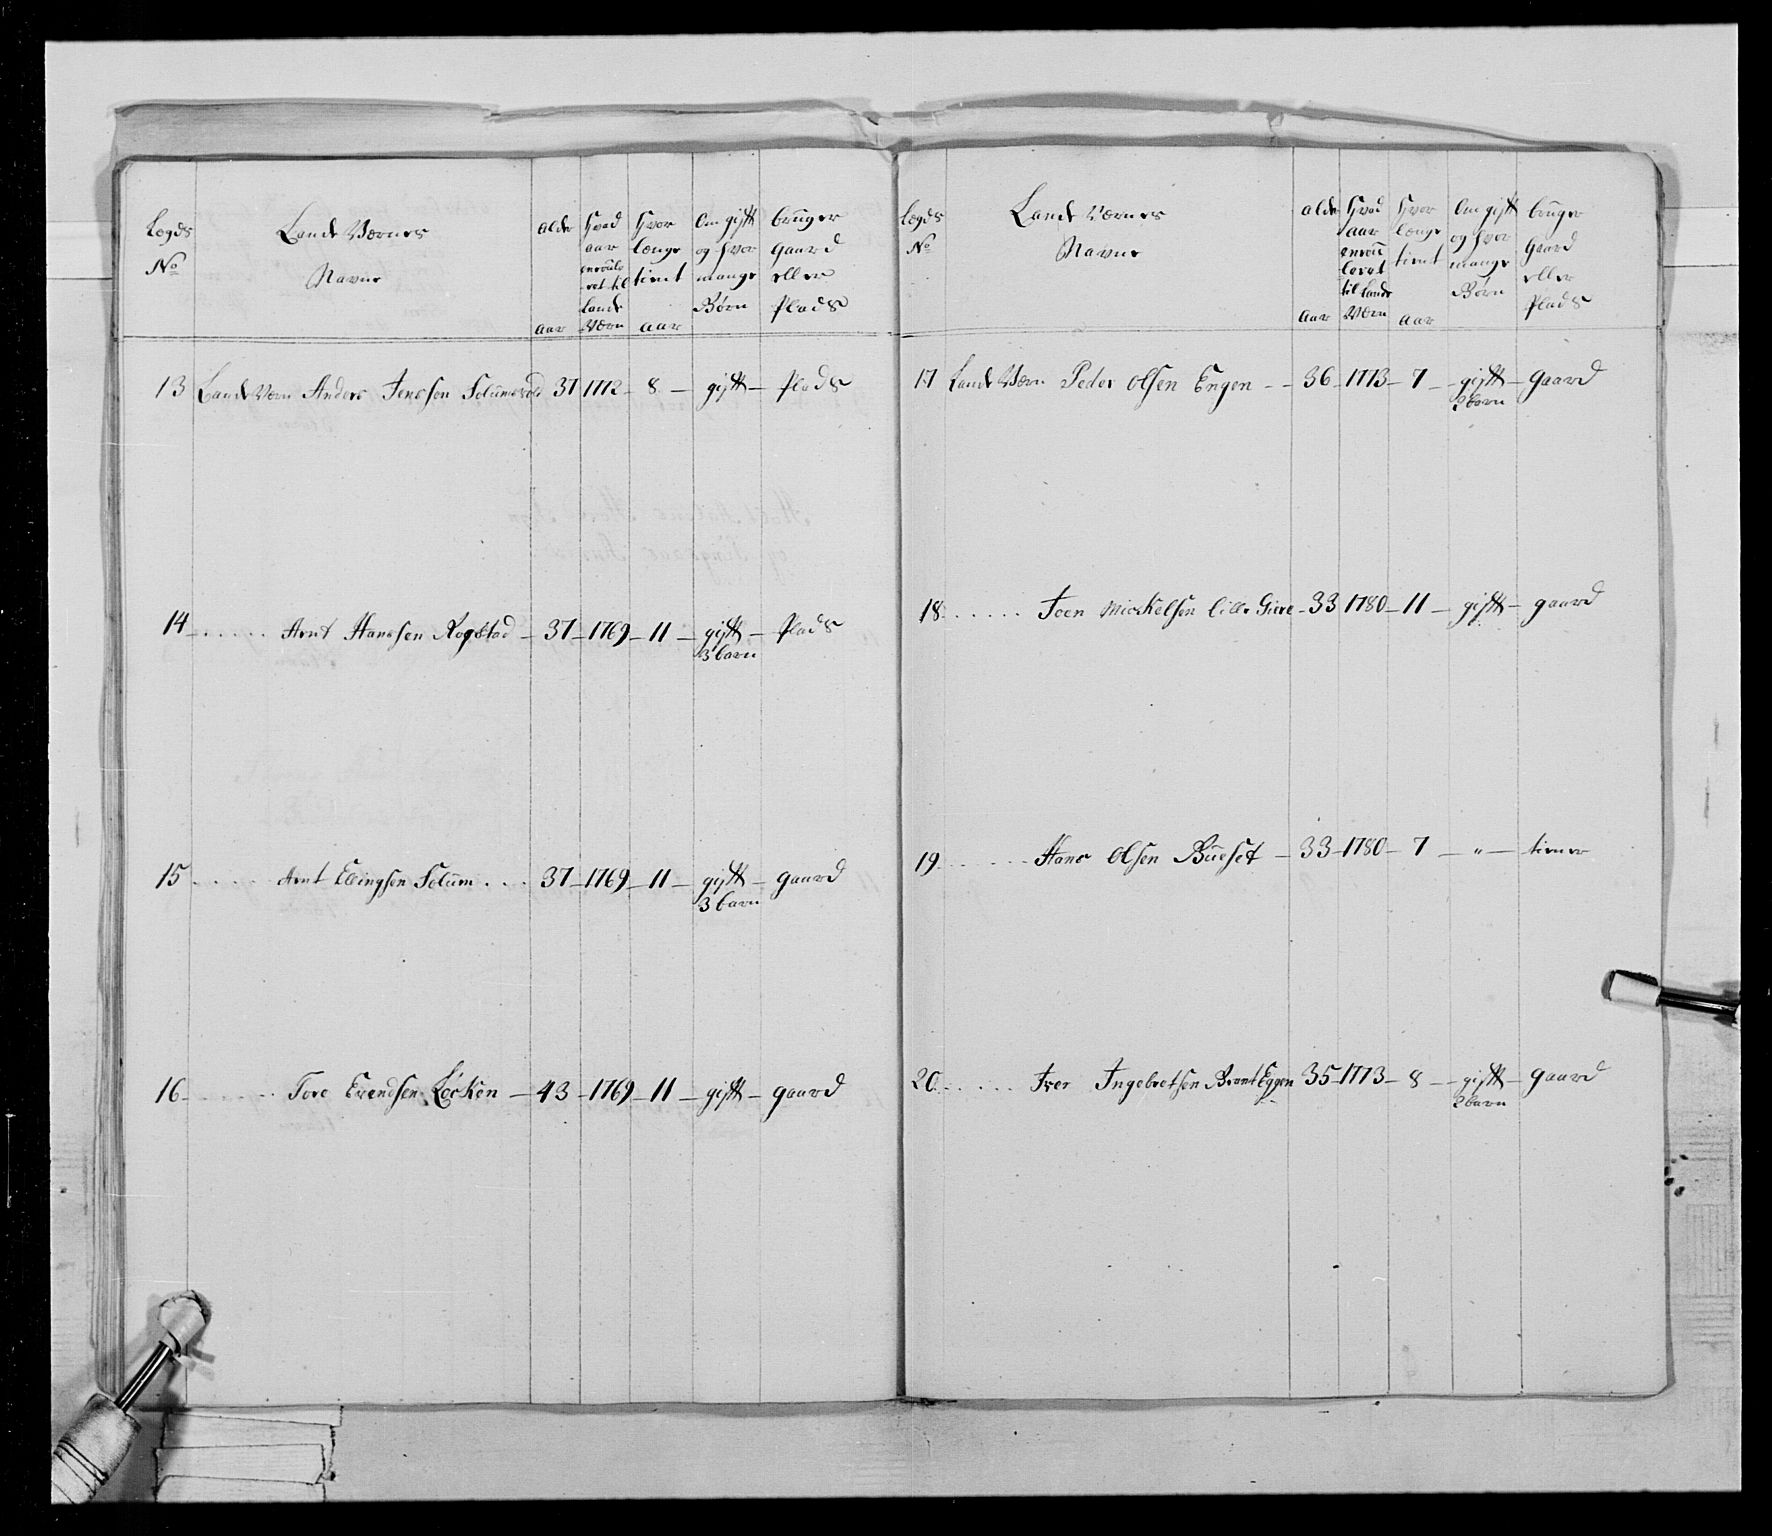 Lægds No
Lande Værnes Navne
alder aar
Hvad aar enroulleret til Lande Værn
Hvor længe tient aar
Om gift og hvor mange Børn
bruger Gaard eller Plads
13 Lande Værn Anders Jenssen Solumsvold 37 1772 - 8 - gift - Plads
14 - . . . . . Arnt Hanssen Rogstad - 37 - 1769 - 11 - gift - Plads
3 barn
15 . . . . . Arnt Ellingsen Solum . . . 37 - 1769 - 11 - gift - gaard
3 barn
16 - . . . . . Tore Evendsen Løcken - 43 - 1769 - 11 - gift - gaard
Lægds No
Lande Værnes Navne
alder Aar
Hvad aar enroulleret til Lande Værn
Hvor længe tient aar
Om gift og hvor mange Børn
bruger Gaard eller Plads
17 Lande Værn Peder Olsen Engen - - 36 - 1773 - 7 - gift - gaard
2 barn
18 . . . . . Joen Mickelsen Lille Giere - 33 1780 - 11 - gift - gaard
19 . . . . . Hans Olsen Bueset - 33 - 1780 - 7 - " - tiener
20 . . . . . Iver Ingebretsen Brant Eggen 35 - 1773 - 8 - gift - gaard
2 barn